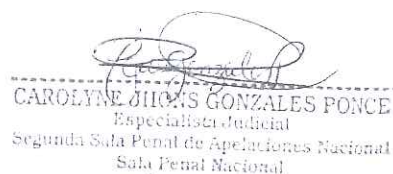 CAROLYNE JHONS GONZALES PONCE
Especialista Judicial
Segunda Sala Penal de Apelaciones Nacional
Sala Penal Nacional